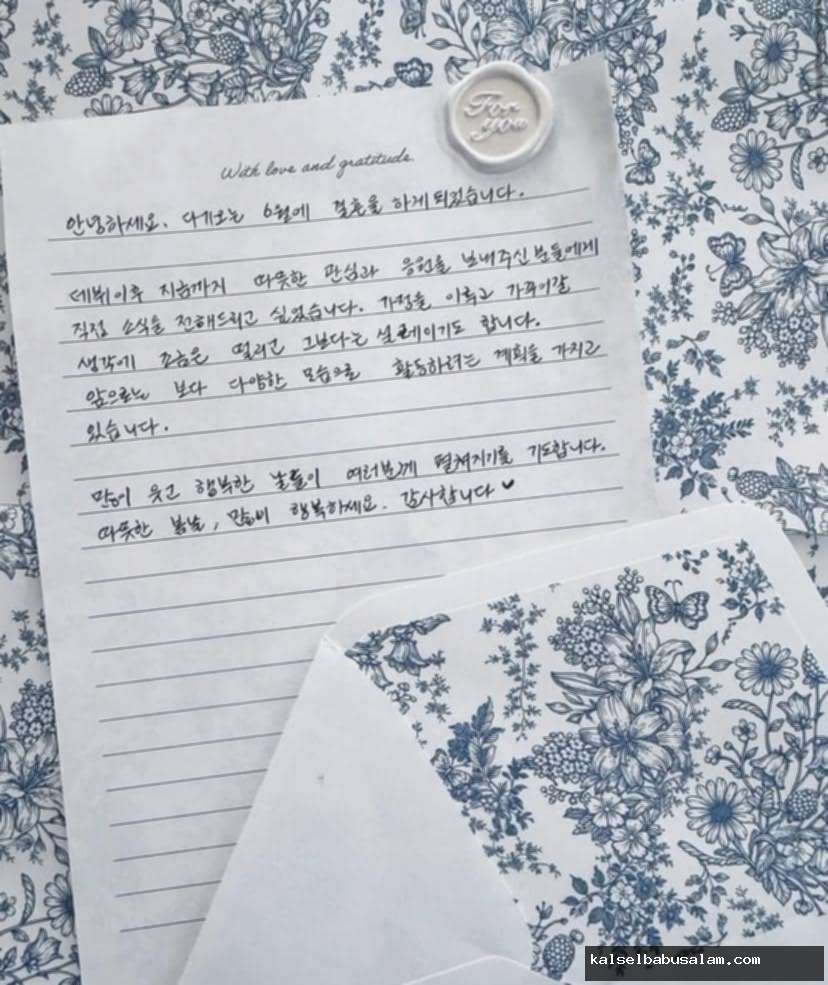 For you
With love and gratitude.
안녕하세요. 다가오는 6월에 결혼을 하게 되었습니다.
데뷔이후 지금까지 따뜻한 관심과 응원을 보내주신 분들에게
직접 소식을 전해드리고 싶었습니다. 가정을 이루고 가꾸어갈
생각에 조금은 떨리고 그보다는 설레이기도 합니다.
앞으로는 보다 다양한 모습으로 활동하려는 계획을 가지고
있습니다.
많이 웃고 행복한 날들이 여러분께 펼쳐지기를 기도합니다.
따뜻한 봄날, 많이 행복하세요. 감사합니다 ♥
kalselbabusalam.com